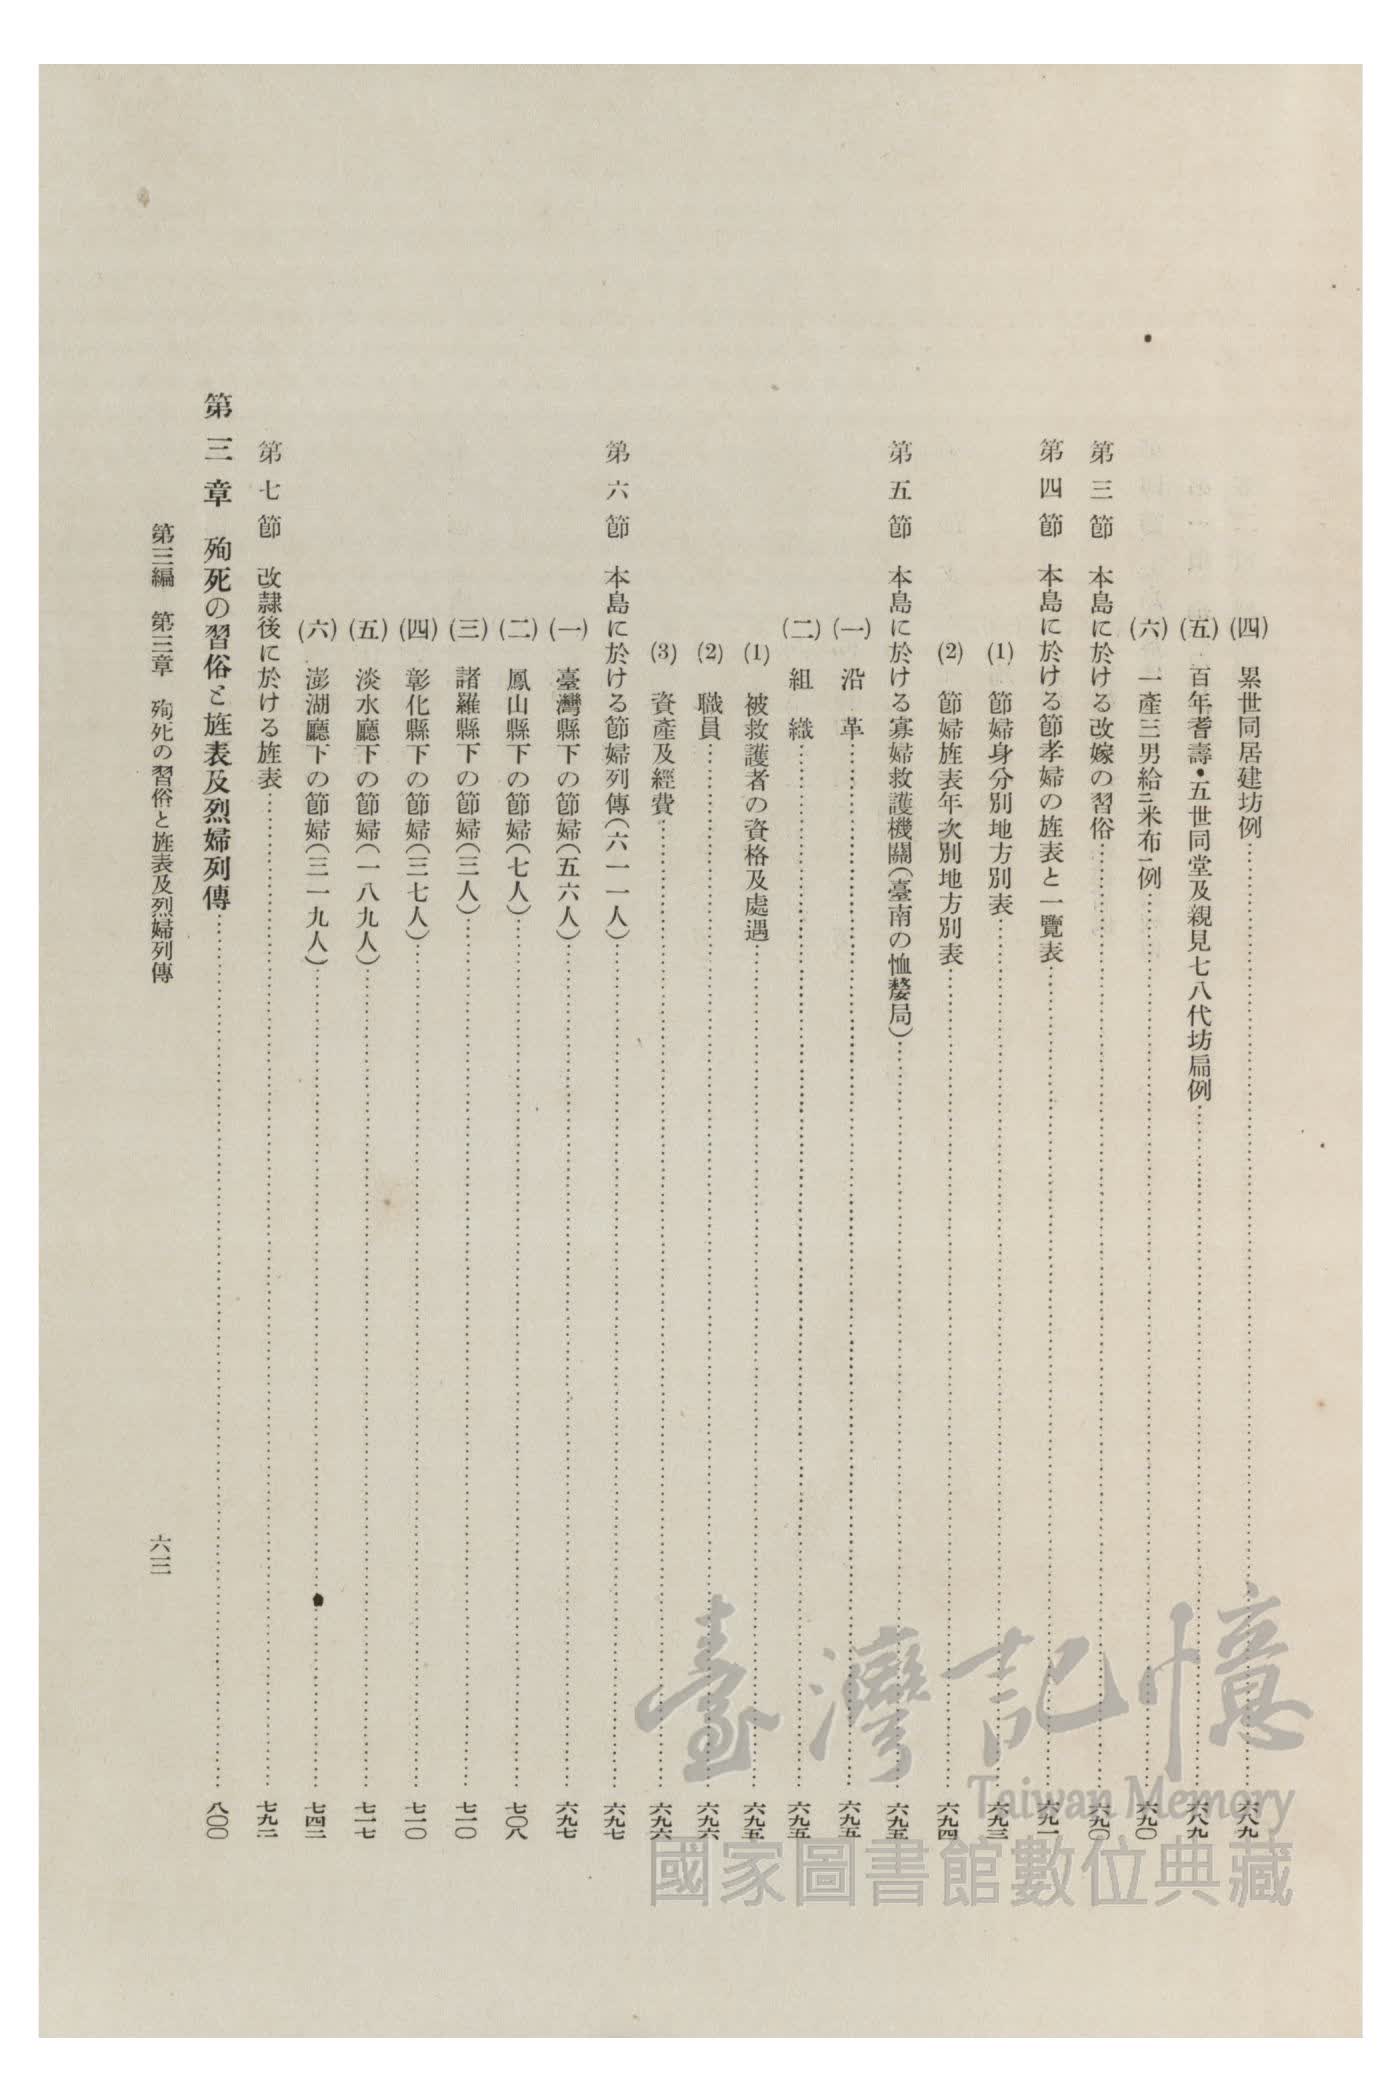 (四) 累世同居建坊例……六八九
(五) 百年耆壽・五世同堂及親見七八代坊扁例……六八九
(六) 一產三男給ニ米布ー例……六九〇
第三節 本島に於ける改嫁の習俗……六九〇
第四節 本島に於ける節孝婦の旌表と一覽表……六九一
(1) 節婦身分別地方別表……六九三
(2) 節婦旌表年次別地方別表……六九四
第五節 本島に於ける寡婦救護機關(臺南の恤嫠局)……六九五
(一) 沿革……六九五
(二) 組織……六九五
(1) 被救護者の資格及處遇……六九五
(2) 職員……六九六
(3) 資產及經費……六九六
第六節 本島に於ける節婦列傳(六一一人)……六九七
(一) 臺灣縣下の節婦(五六人)……六九七
(二) 鳳山縣下の節婦(七人)……七〇八
(三) 諸羅縣下の節婦(三人)……七一〇
(四) 彰化縣下の節婦(三七人)……七一〇
(五) 淡水廳下の節婦(一八九人)……七一七
(六) 澎湖廳下の節婦(三一九人)……七四二
第七節 改隷後に於ける旌表……七九二
第三章 殉死の習俗と旌表及烈婦列傳……八〇〇
第三編 第三章 殉死の習俗と旌表及烈婦列傳
六三
臺灣記憶
Taiwan Memory
國家圖書館數位典藏